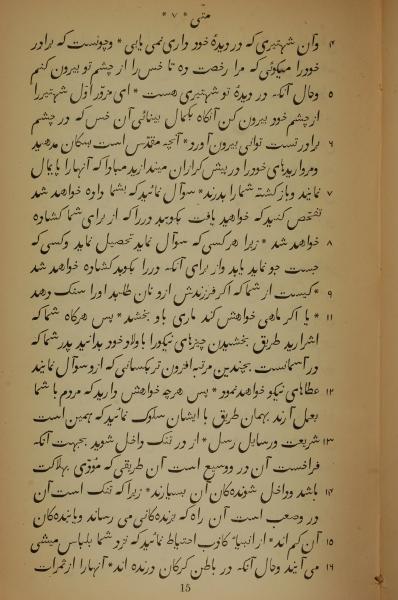 متی * ۷ *
وآن شهتیری که در دیدهٔ خود داری نمی یابی * وچونست که برادر
۴ خودرا میگوئی که مرا رخصت ده تا خس را از چشم تو بیرون کنم
وحال آنکه در دیدهٔ تو شهتیری هست * ای مزور اول شهتیررا
۵ از چشم خود بیرون کن آنگاه بکمال بینائی آن خس که در چشم
برادر تست توانی بیرون آورد * آنچه مقدس است بسگان مدهید
۶ ومرواریدهای خودرا در پیش گرازان میندازید مبادا که آنهارا پایمال
نمایند وبازگشته شمارا بدرند * سوال نمائید که بشما داده خواهد شد
۷ تفحص کنید که خواهید یافت بکوبید دررا که از برای شما گشاده
۸ خواهد شد * زیرا هر کسی که سوال نماید تحصیل نماید وکسی که
جست جو نماید یابد واز برای آنکه دررا بکوبد گشاده خواهد شد
۹ * کیست از شما که اگر فرزندش ازو نان طلبد اورا سنگ دهد
۱۱ * یا اگر ماهی خواهش کند ماری باو بخشد * پس هرگاه شما که
اشرارید طریق بخشیدن چیزهای نیکورا باولاد خود بدانید پدر شما که
در آسمانست بچندین مرتبه افزون تر بکسانی که ازو سوال نمایند
۱۲ عطاهای نیکو خواهد نمود * پس هرچه خواهش دارید که مردم با شما
بعمل آرند بهمان طریق با ایشان سلوک نمائید که همین است
۱۳ شریعت ورسایل رسل * از در تنگ داخل شوید بجهت آنکه
فراخست آن در ووسیع است آن طریقی که مؤدی بهلاکت
۱۴ باشد وداخل شوندهگان آن بسیارند * زیرا که تنگ است آن
در وصعب است آن راه که بزندهگانی می رساند ویابندهگان
۱۵ آن کم اند * از انبیاء کاذب احتیاط نمائید که نزد شما بلباس میشی
۱۶ می آیند وحال آنکه در باطن گرگان درنده اند * آنهارا از ثمرات
15